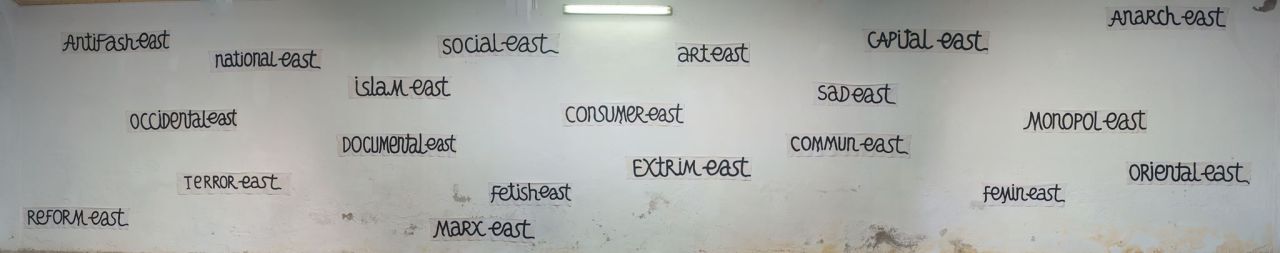 AntiFash-east
national-east
social-east
art east
CAPital-east
Anarch-east
islaM-east
SAD east
OCCiDentaleast
DOCUMental-east
CONSUMER-east
COMMUN-east
MONOPOL-east
TERROR-east
fetisheast
EXTRiM-east
feMin-east
ORiental-east
REFORM-east
MARX-east